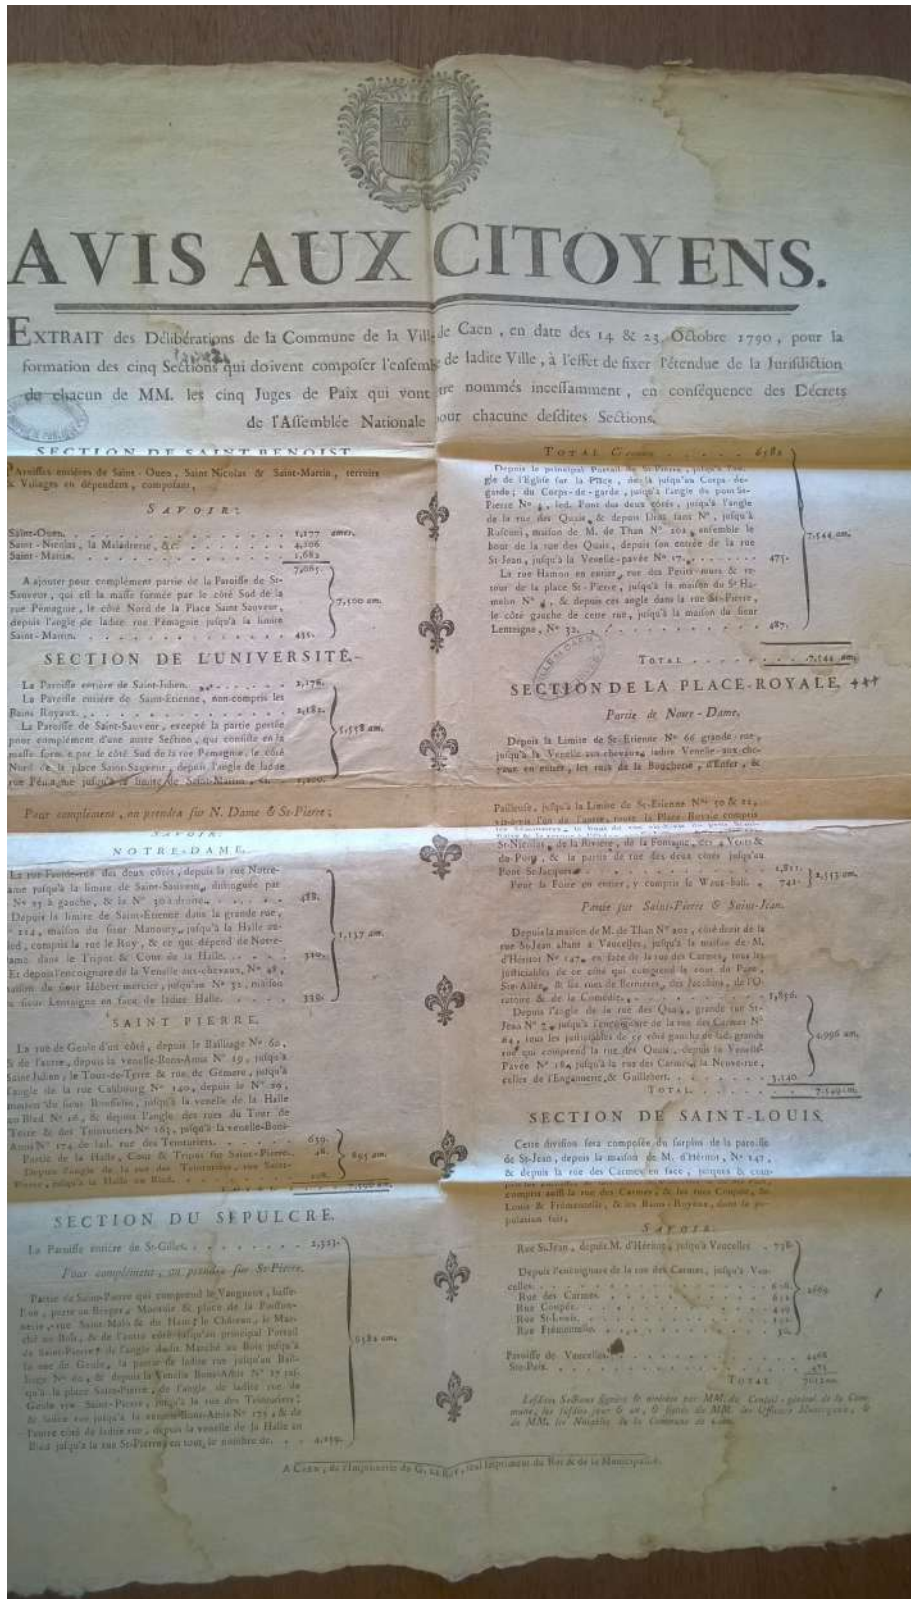 AVIS AUX CITOYENS.
EXTRAIT des Délibérations de la Commune de la Ville de Caen, en date des 14 & 23 Octobre 1790, pour la
formation des cinq Sections qui doivent composer l'ensemb de ladite Ville, à l'effet de fixer l'étendue de la Jurisdiction
de chacun de MM. les cinq Juges de Paix qui vont tre nommés incessamment, en conséquence des Décrets
de l'Assemblée Nationale pour chacune desdites Sections.
SECTION DE SAINT BENOIST
Paroisses entières de Saint-Ouen, Saint Nicolas & Saint-Martin, terroirs
& Villages en dépendant, composant,
SAVOIR:
Saint-Ouen. 1,177 ames.
Saint-Nicolas, la Maladrerie, &c. 4,206
Saint-Martin. 1,682
7,065
A ajouter pour complément partie de la Paroisse de St-
Sauveur, qui est la masse formée par le côté Sud de la
rue Pémagnie, le côté Nord de la Place Saint Sauveur,
depuis l'angle de ladite rue Pémagnie jusqu'à la limite
Saint-Martin. 435.
7,500 am.
SECTION DE L'UNIVERSITÉ.
La Paroisse entière de Saint-Julien. 2,176.
La Paroisse entière de Saint-Etienne, non-compris les
Bains Royaux. 2,182.
La Paroisse de Saint-Sauveur, excepté la partie portée
pour complément d'une autre Section, qui consiste en la
masse formée par le côté Sud de la rue Pémagnie, le côté
Nord de la place Saint-Sauveur, depuis l'angle de ladite
rue Pémagnie jusqu'à la limite de Saint-Martin, ci. 1,200.
5,558 am.
Pour complément, on prendra sur N. Dame & St-Pierre;
SAVOIR:
NOTRE-DAME.
La rue Froide-rue des deux côtés, depuis la rue Notre-
ame jusqu'à la limite de Saint-Sauveur, distinguée par
N° 25 à gauche, & le N° 30 à droite. 488.
Depuis la limite de Saint-Etienne dans la grande rue,
214, maison du sieur Manoury, jusqu'à la Halle au-
led, compris la rue le Roy, & ce qui dépend de Notre-
ame dans le Tripot & Cour de la Halle. 310.
Et depuis l'encoignure de la Venelle aux-chevaux, N° 48,
maison du sieur Hébert mercier, jusqu'au N° 32, maison
u sieur Lentaigne en face de ladite Halle. 339.
1,137 am.
SAINT PIERRE.
La rue de Geole d'un côté, depuis le Bailliage N° 60,
& de l'autre, depuis la venelle-Bons-Amis N° 19, jusqu'à
Saint Julien, le Tour-de-Terre & rue de Gémare, jusqu'à
l'angle de la rue Calibourg N° 140, depuis le N° 29,
maison du sieur jusqu'à la venelle de la Halle
au Bled N° 16, & depuis l'angle des rues du Tour de
Terre & des Teinturiers N° 163, jusqu'à la venelle-Bons-
Amis N° 174 de lad. rue des Teinturiers. 639.
Partie de la Halle, Cour & Tripot sur Saint-Pierre. 48.
Depuis l'angle de la rue des Teinturiers, rue Saint-
Pierre, jusqu'à la Halle au Bled. 208.
895 am.
TOTAL 7,590 am.
SECTION DU SÉPULCRE.
La Paroisse entière de St-Gilles. 2,323.
Pour complément, on prendra sur St-Pierre.
Partie de Saint-Pierre qui comprend le Vaugueux, basse-
rue, porte au Berger, Montoir & place de la Poisson-
nerie, rue Saint-Malo & du Ham; le Château, le Mar-
ché au Bois, & de l'autre côté jusqu'au principal Portail
de Saint-Pierre; de l'angle dudit Marché au Bois jusqu'à
la rue de Geole, la partie de ladite rue jusqu'au Bail-
liage N° 60, & depuis la Venelle Bons-Amis N° 17 jus-
qu'à la place Saint-Pierre, de l'angle de ladite rue de
Geole rue Saint-Pierre, jusqu'à la rue des Teinturiers;
& ladite rue jusqu'à la venelle-Bons-Amis N° 175, & de
l'autre côté de ladite rue, depuis la venelle de la Halle au
Bled jusqu'à la rue St-Pierre; en tout, le nombre de. 4,259.
6582 am.
TOTAL 6582
Depuis le principal Portail de St-Pierre, jusqu'à l'an-
gle de l'Eglise sur la Place, de là jusqu'au Corps-de-
garde; du Corps-de-garde, jusqu'à l'angle du pont St-
Pierre N° 4, led. Pont des deux côtés, jusqu'à l'angle
de la rue des Quais, & depuis sans N°, jusqu'à
maison de M. de Than N° 202, ensemble le
bout de la rue des Quais, depuis son entrée de la rue
St Jean, jusqu'à la Venelle-pavée N° 17. 475.
La rue Hamon en entier, rue des Petits-murs & re-
tour de la place St-Pierre, jusqu'à la maison du Sr Ha-
melin N° 4, & depuis ces angle dans la rue St-Pierre,
le côté gauche de cette rue, jusqu'à la maison du sieur
Lentaigne, N° 32. 487.
7,544 am.
TOTAL 7,544 am.
SECTION DE LA PLACE-ROYALE.
Partie de Notre-Dame.
Depuis la Limite de St-Etienne N° 66 grande-rue,
jusqu'à la Venelle aux-chevaux, ladite Venelle-aux-che-
vaux en entier, les rues de la Boucherie, d'Enfer, &
Pailleuse, jusqu'à la Limite de St-Etienne Nos 50 & 22,
vis-à-vis l'un de l'autre, toute la Place Royale compris
St-Nicolas, de la Rivière, de la Fontaine, des 4 Vents &
du Pont, & la partie de rue des deux côtés jusqu'au
Pont St-Jacques. 1,811.
Pour la Foire en entier, y compris le Waux-hall. 742.
2,553 am.
Partie sur Saint-Pierre & Saint-Jean.
Depuis la maison de M. de Than N° 202, côté droit de la
rue St-Jean allant à Vaucelles, jusqu'à la maison de M.
d'Héritot N° 147, en face de la rue des Carmes, tous les
justiciables de ce côté qui comprend le cour du Parc,
Ste-Allés, & les rues de Bernieres, des Jacobins, de l'O-
ratoire & de la Comédie. 1,856.
Depuis l'angle de la rue des Quais, grande rue St-
Jean N° 7, jusqu'à l'encoignure de la rue des Carmes N°
64, tous les justiciables de ce côté gauche de lad. grande
rue qui comprend la rue des Quais, depuis la Venelle-
Pavée N° 18, jusqu'à la rue des Carmes, la Neuve-rue,
celles de l'Engannerie, & Guillebert. 3,140.
4,996 am.
TOTAL 7,549 am.
SECTION DE SAINT-LOUIS.
Cette division sera composée du surplus de la paroisse
de St-Jean, depuis la maison de M. d'Héritot, N° 147,
& depuis la rue des Carmes en face, jusques & com-
compris aussi la rue des Carmes, & les rues Coupée, St-
Louis & Frémentelle, & les Bains-Royaux, dont la po-
pulation fait;
SAVOIR:
Rue St-Jean, depuis M. d'Héritot, jusqu'à Vaucelles 738.
Depuis l'encoignure de la rue des Carmes, jusqu'à Vau-
celles.
Rue des Carmes.
Rue Coupée.
Rue St-Louis.
Rue Frémentelle.
Paroisse de Vaucelles.
Ste-Paix.
TOTAL
Lesdites Sections signées & arrêtées par MM. du Conseil-général de la Com-
mune, les susdits jour & an, & signés de MM. les Officiers Municipaux, &
de MM. les Notables de la Commune de Caen.
A CAEN, de l'Imprimerie de G. LE ROY, seul Imprimeur du Roi & de la Municipalité.